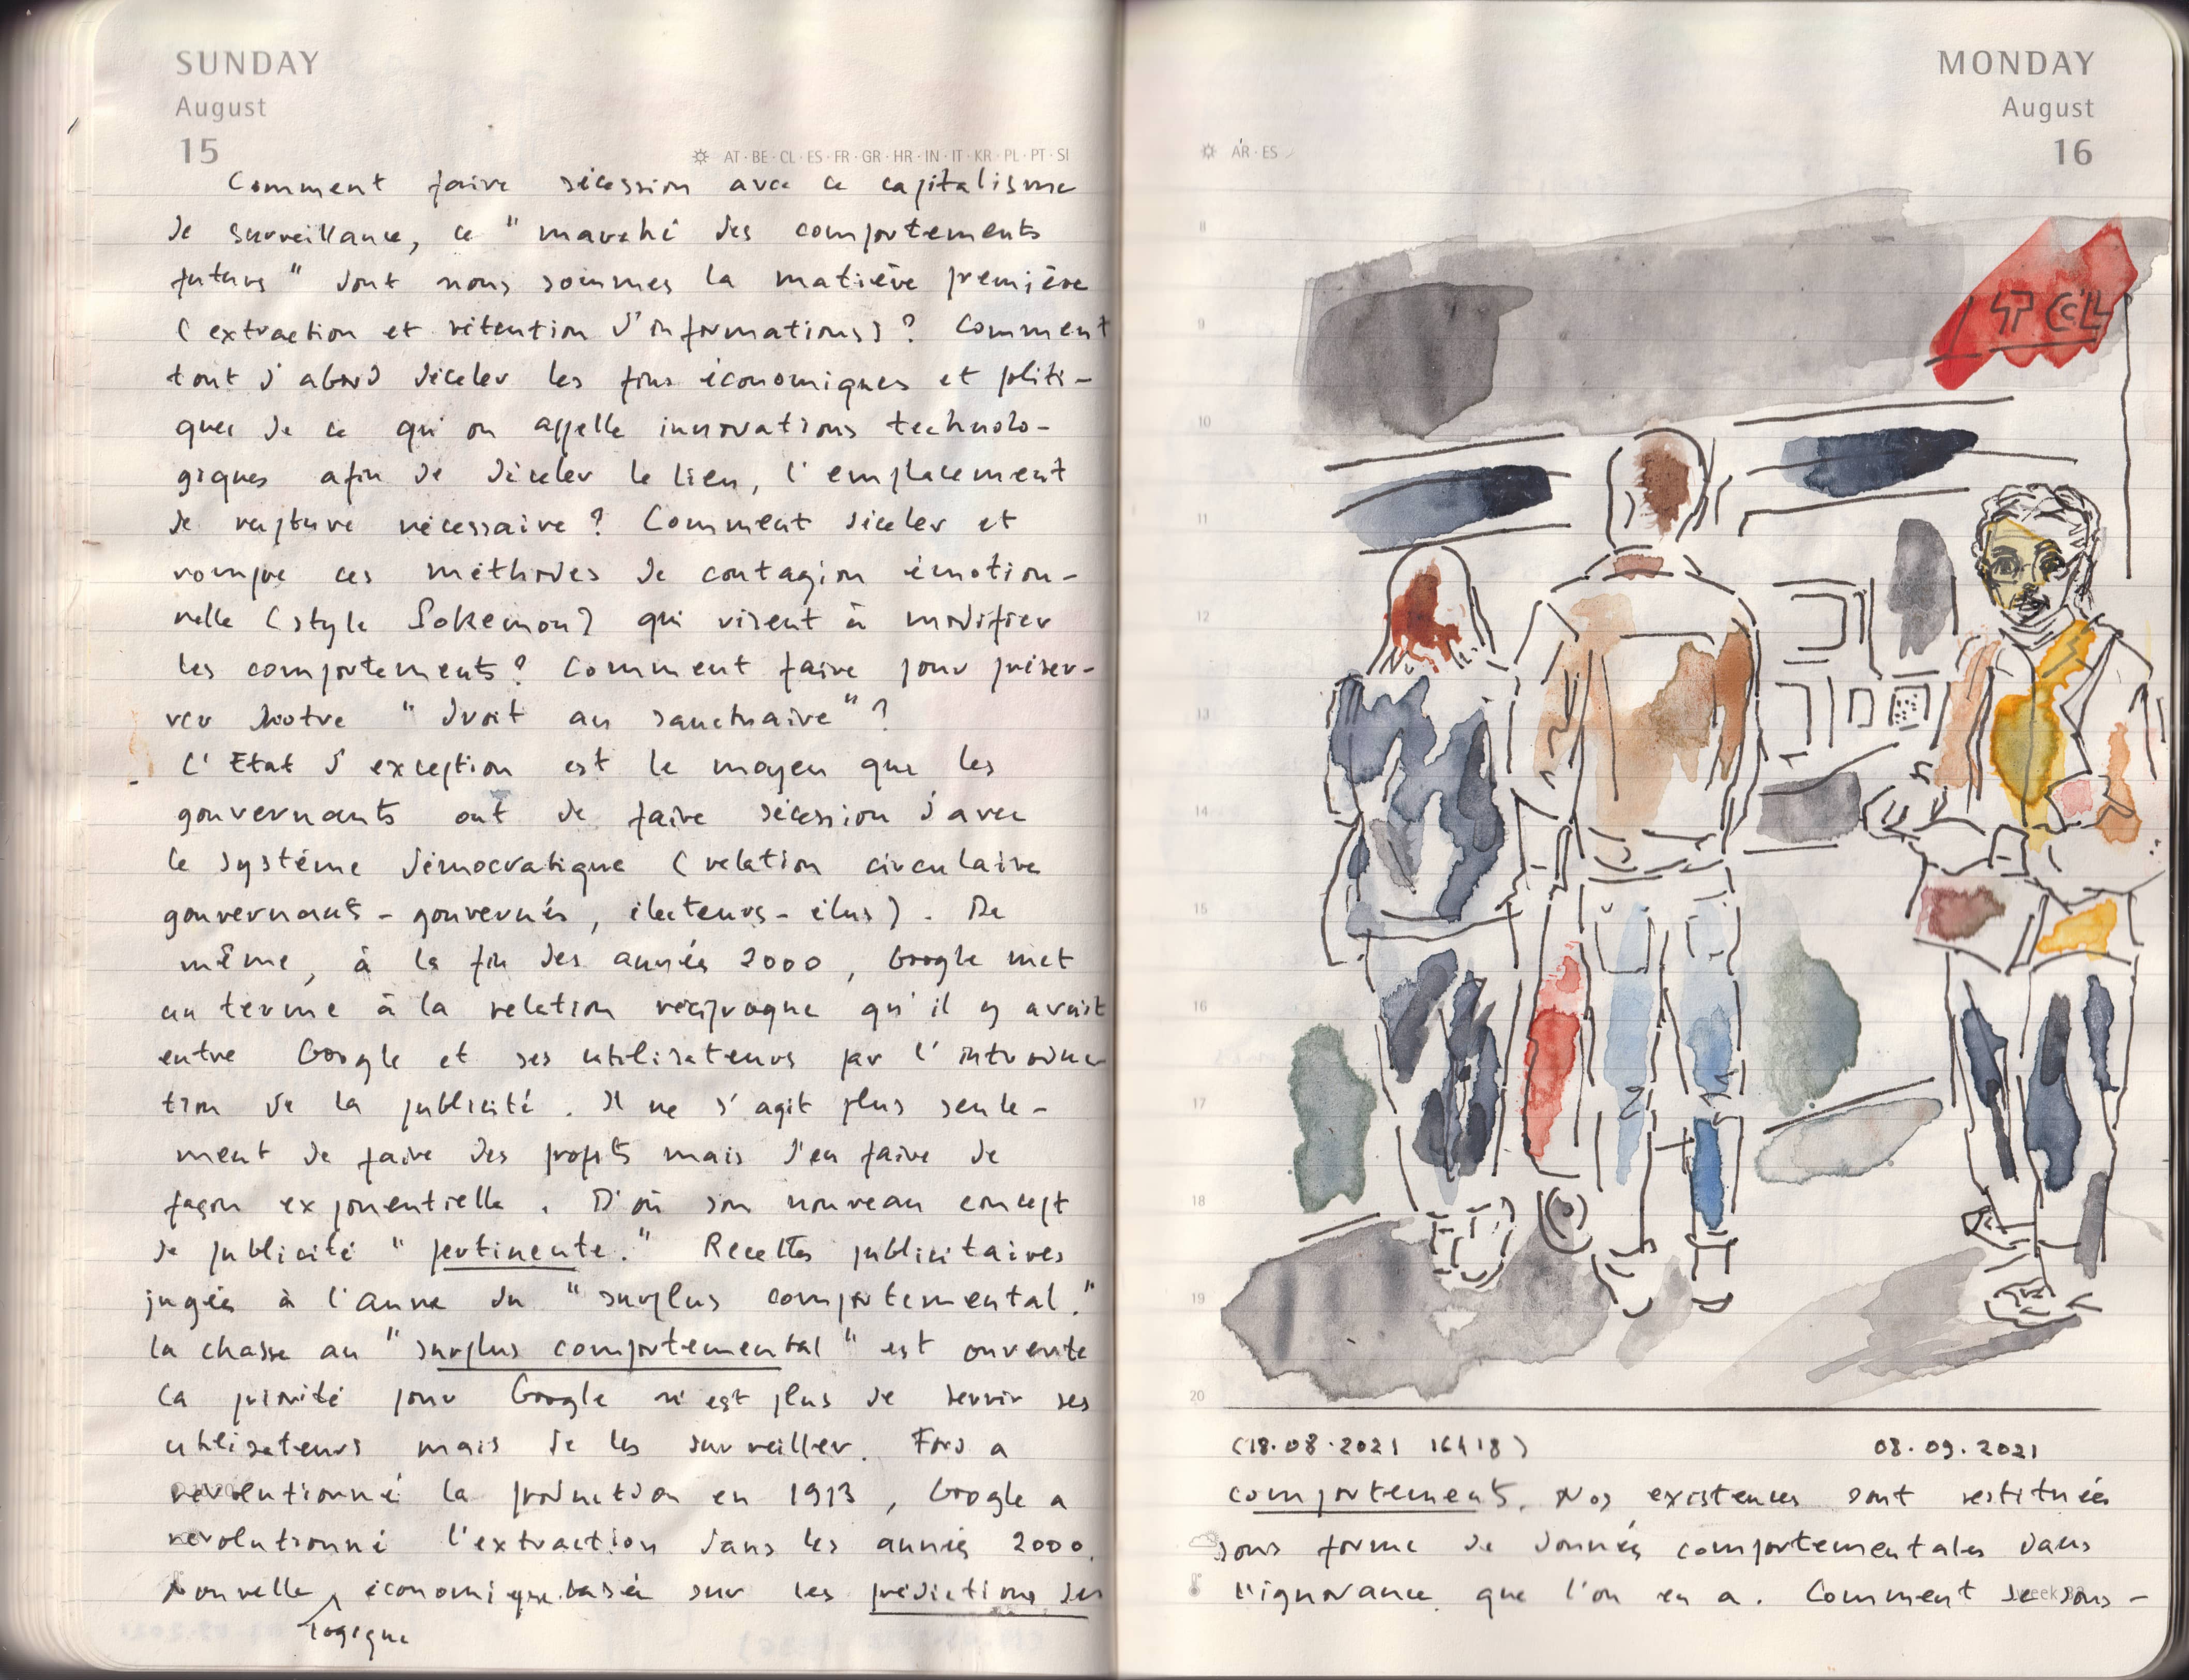 SUNDAY
August
15
AT · BE · CL · ES · FR · GR · HR · IN · IT · KR · PL · PT · SI
Comment faire sécession avec ce capitalisme
de surveillance, ce " marché des comportements
futurs " dont nous sommes la matière première
( extraction et rétention d'informations ) ? Comment
tout d'abord déceler les fins économiques et politi-
ques de ce qu'on appelle innovations technolo-
giques afin de déceler le lieu, l'emplacement
de rupture nécessaire ? Comment déceler et
rompre ces méthodes de contagion émotion-
nelle ( style Pokemon ) qui visent à modifier
les comportements ? Comment faire pour préser-
ver notre " droit au sanctuaire " ?
L'Etat d'exception est le moyen que les
gouvernants ont de faire sécession d'avec
le système démocratique ( relation circulaire
gouvernants - gouvernés, électeurs - élus ) . De
même, à la fin des années 2000, Google met
un terme à la relation réciproque qu'il y avait
entre Google et ses utilisateurs par l'introduc
tion de la publicité . Il ne s'agit plus seule-
ment de faire des profits mais d'en faire de
façon exponentielle . D'où son nouveau concept
de publicité " pertinente. " Recettes publicitaires
jugées à l'aune du " surplus comportemental. "
La chasse au " surplus comportemental " est ouverte
La priorité pour Google n'est plus de servir ses
utilisateurs mais de les surveiller. Ford a
révolutionné la production en 1913, Google a
révolutionné l'extraction dans les années 2000.
Nouvelle économique basée sur les prédictions des
logique
MONDAY
August
16
ÁR · ES
8
9
10
11
12
13
14
15
16
17
18
19
20
(18.08.2021 16h18) 08.09.2021
comportements. Nos existences sont restituées
sous forme de données comportementales dans
l'ignorance que l'on en a. Comment se sous-
week